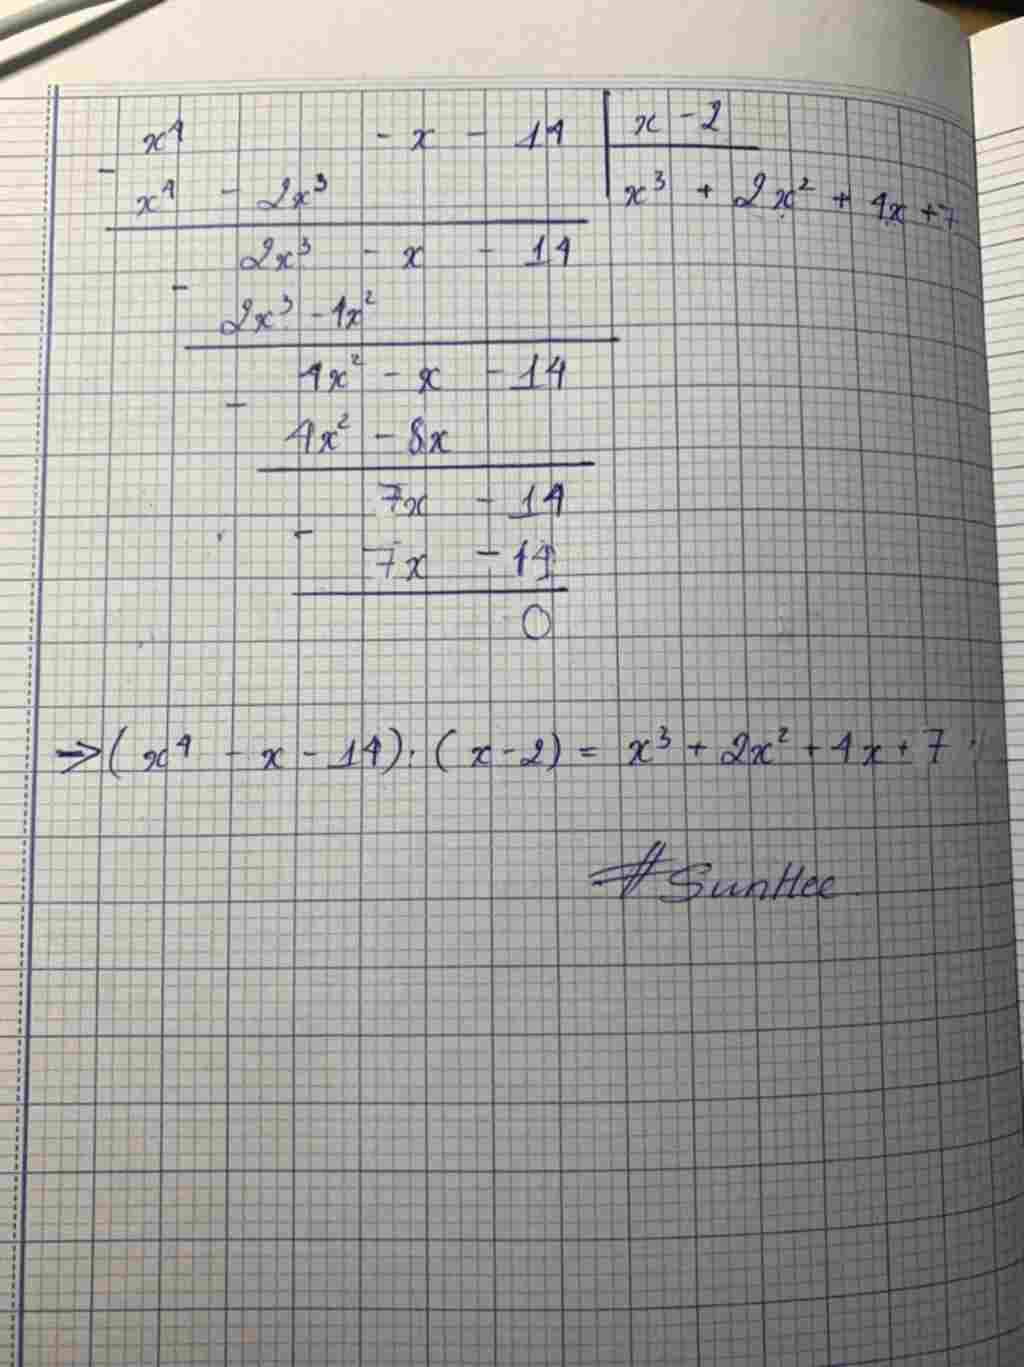 x⁴ - x - 14 | x - 2
- x⁴ - 2x³ | x³ + 2x² + 4x + 7
2x³ - x - 14
- 2x³ - 4x²
4x² - x - 14
- 4x² - 8x
7x - 14
- 7x - 14
0
⇒ (x⁴ - x - 14) : (x - 2) = x³ + 2x² + 4x + 7.
#SunHee